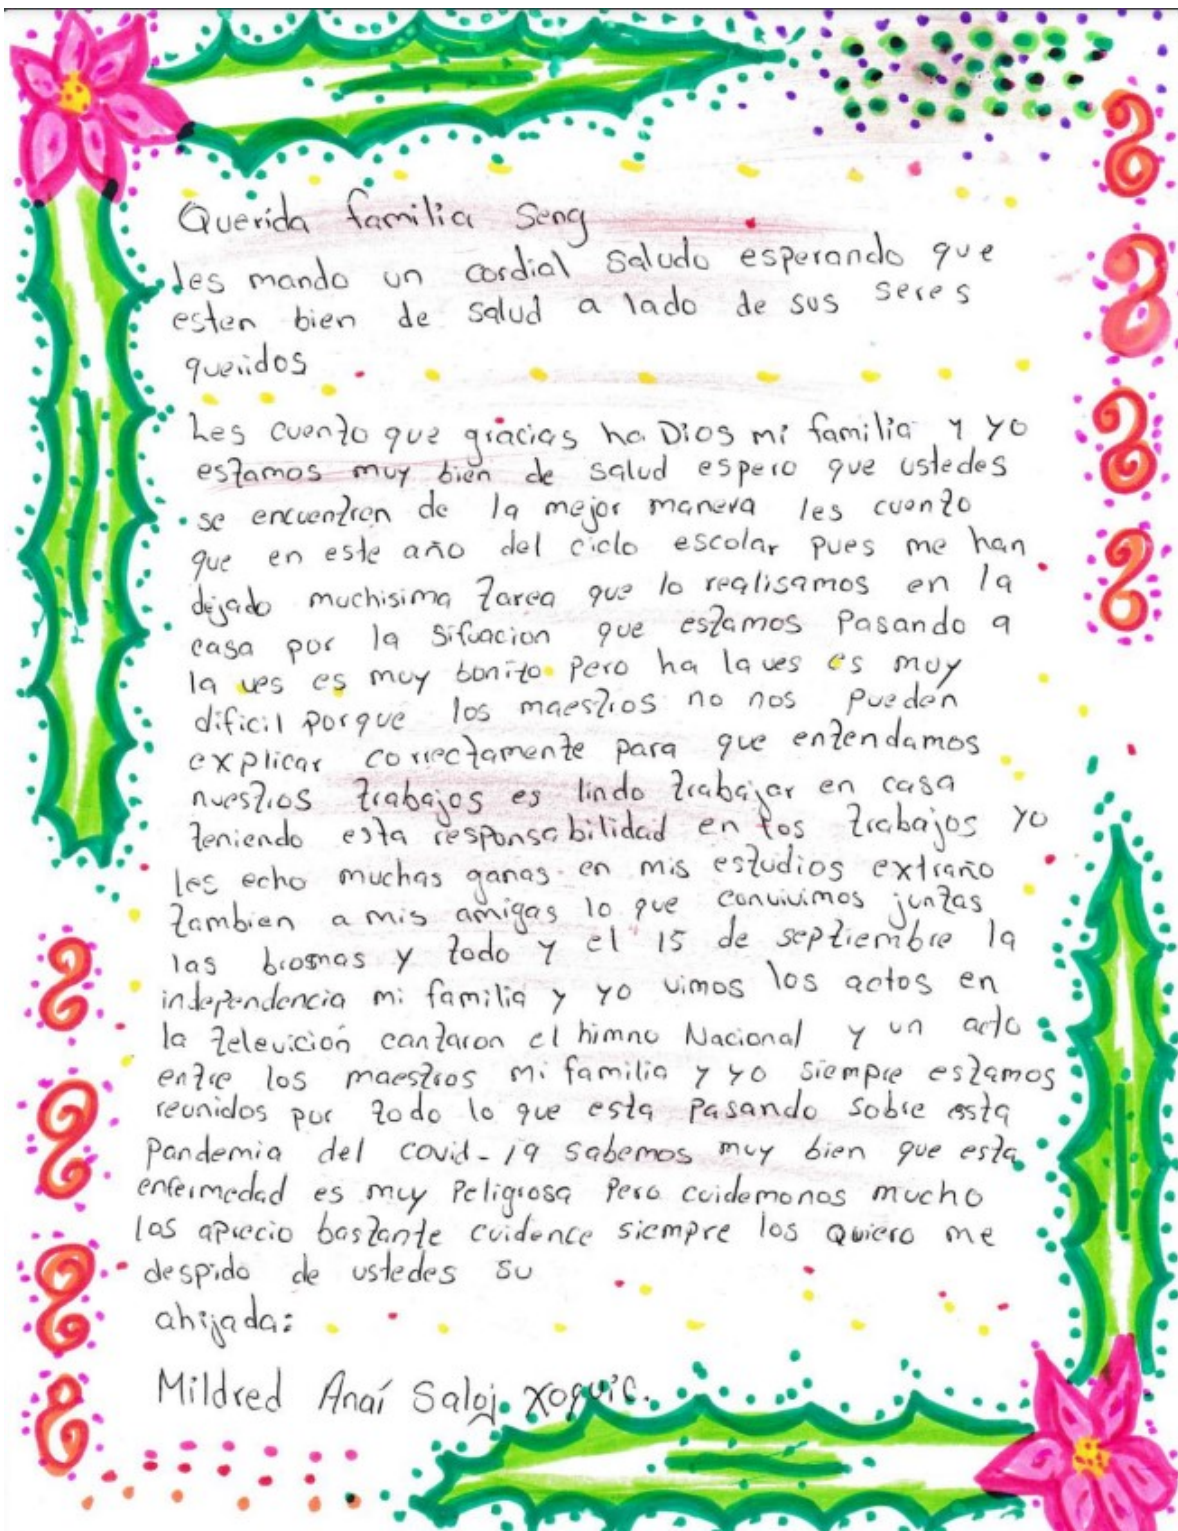 Querida familia Seng
les mando un cordial saludo esperando que
esten bien de salud a lado de sus seres
queridos
Les cuento que gracias ha Dios mi familia y yo
estamos muy bien de salud espero que ustedes
se encuentren de la mejor manera les cuento
que en este año del ciclo escolar pues me han
dejado muchisima tarea que lo realisamos en la
casa por la situacion que estamos Pasando a
la ves es muy bonito Pero ha la ves es muy
dificil porque los maestros no nos pueden
explicar correctamente para que entendamos
nuestros trabajos es lindo trabajar en casa
teniendo esta responsabilidad en los trabajos yo
les echo muchas ganas en mis estudios extraño
tambien a mis amigas lo que convivimos juntas
las brosmas y todo y el 15 de septiembre la
independencia mi familia y yo vimos los actos en
la televición cantaron el himno Nacional y un acto
entre los maestros mi familia y yo siempre estamos
reunidos por todo lo que esta Pasando sobre esta
Pandemia del covid-19 sabemos muy bien que esta
enfermedad es muy Peligrosa Pero cuidemonos mucho
los aprecio bastante cuidence siempre los Quiero me
despido de ustedes su
ahijada:
Mildred Anaí Saloj Xoquic.